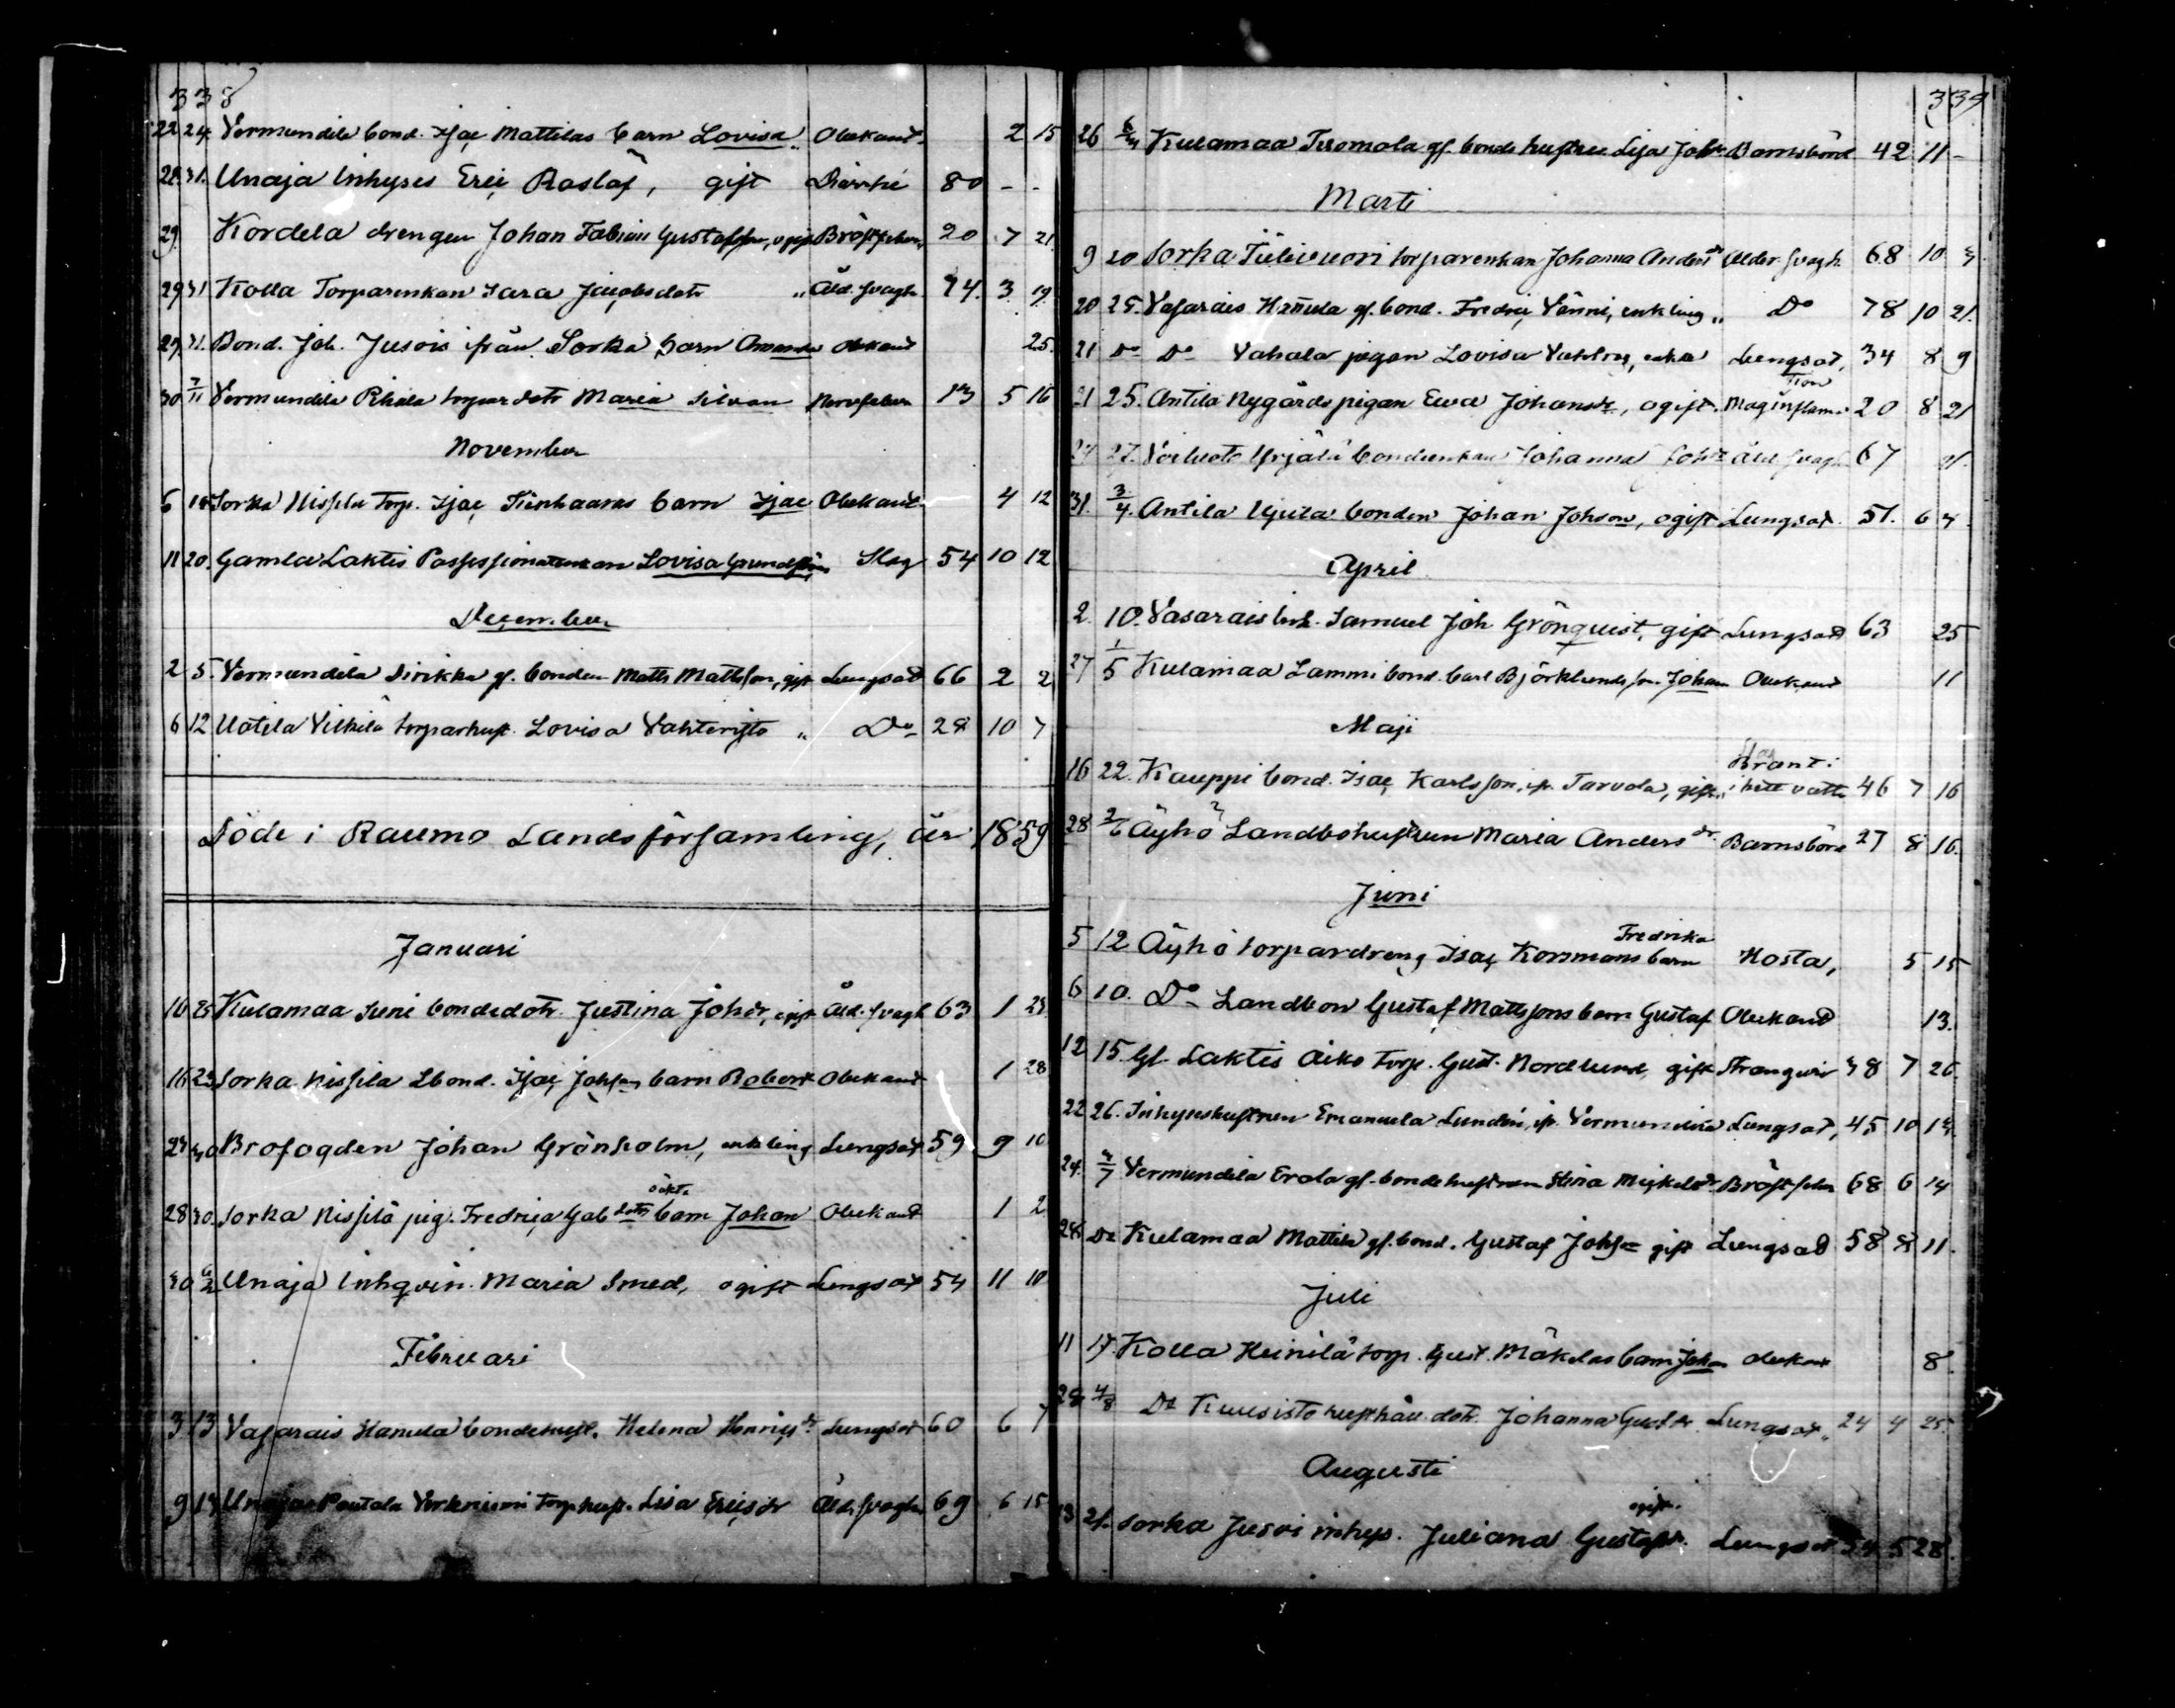 338
22 24 Vermundila bond. Isac Mattilas barn Lovisa „ Obekant 2 15
28 31. Unaja Inhyses Eric Roslöf, gift Diarrhé 80 - -
29 Kordela drengen Johan Fabian Gustafsson, ogift Bröstfeber 20 7 21
29 31 Kolla Torparenkan Sara Jacobsdotr „ Åld. svagh. 74. 3 19.
29. 31. Bond. Joh. Jusois ifrån Sorka barn Amanda Obekant 25.
30 7/11 Vermundila Rihala torpardotr Maria Silvan Nervfeber 13 5 16
November
6 14 Sorka Nissila Torp. Isac barn Isac Obekant 4 12
11 20. Gamla Laktis Possessionatenkan Lovisa Slag 54 10 12
December
2 5. Vermundila Sirikka gl. bonden Matts Mattsson, gift Lungsot 66 2 2
6 12 Uotila Vilkilä torparhust. Lovisa Vahteristo „ Do 28 10 7
Döde i Raumo Landsförsamling, år 1859
Januari
16 25 Kulamaa Suni bondedotr. Justina Johdr, ogift Åld. svagh 63 1 23
16 23 Sorka Nissila Lbond. Isac Johsson barn Robert Obekant 1 28
24 30 Brofogden Johan Grönholm, enkling Lungsot 59 9 10
28 30. Sorka Nissilä pig. Fredrica Gab dotrs oäkta barn Johan Obekant 1 2
30 6/2 Unaja Inhqvin. Maria Smed, ogift Lungsot 54 11 10
Februari
3 13 Vasarais Hanula bondehust. Helena Henricsdr Lungsot 60 6 7
9 13 Unaja Pentala torphust. Lisa Ericsdr Åld. svagh 69 6 15
339
26 6/3 Kulamaa Tuomola gl. bondehustru Lisa Johdr Barnsbörd 42 11 -
Marti
9 20 Sorka Tiilivuori torparenkan Johanna Andersdr Ålder svagh. 68 10 3.
20 25. Vasarais Hannula gl. bond. Fredric Vänni, enkling „ Do 78 10 21.
21 Do Do Vahala pigan Lovisa enka Lungsot, 34 8 9
21 25. Antila Nygårds pigan Ewa Johansdr, ogift. Mag inflamation 20 8 21
24 27. Voiluoto Yrjälä bondeenkan Johanna Johdr åld svagh 67 21.
31. 3/4. Antila Ujula bonden Johan Johson, ogift Lungsot. 51. 6 4.
April
2. 10. Vasarais Inh. Samuel Joh Grönquist, gift Lungsot 63 25
27 1/5 Kulamaa Lammi bond. Carl Björklunds son Johan Obekant 11
Maji
16 22. Kauppi bond. Isac Karlsson, ifr. Tarvola, gift „ Brant i hett vatten 46 7 16
28 2/6 Äyhö Landbohustrun Maria Andersdr. Barnsbörd 27 8 16.
Juni
5 12 Äyhö torpardreng Isac Korsmans barn Fredrika Hosta, 5 15
6 10. Do Landbon Gustaf Mattssons barn Gustaf Obekant 13.
12 15. Gl. Laktis Aiko torp. Gust. Nordlund, gift Stranguri 38 7 26.
22 26. Inhyseshustrun Emanuela Lundén, ifr. Vermundila Lungsot, 45 10 13.
24. 3/7 Vermundila Erola gl. bondehustrun Stina Mickelsdr Bröstfeber 68 6 14
28 Do Kulamaa Mattila gl. bond. Gustaf Johsson gift Lungsot 58 8 11.
Juli
11 17 Kolla Heinilä torp. Gust. Mäkeläs barn Johan obekant 8.
28 4/8 Do Kuusisto dotr. Johanna Gustdr Lungsot „ 24 4 25.
Augusti
13 21. Sorka Jusoi inhys. Juliana Gustafsdr. ogift. Lungsot 54 5 28.